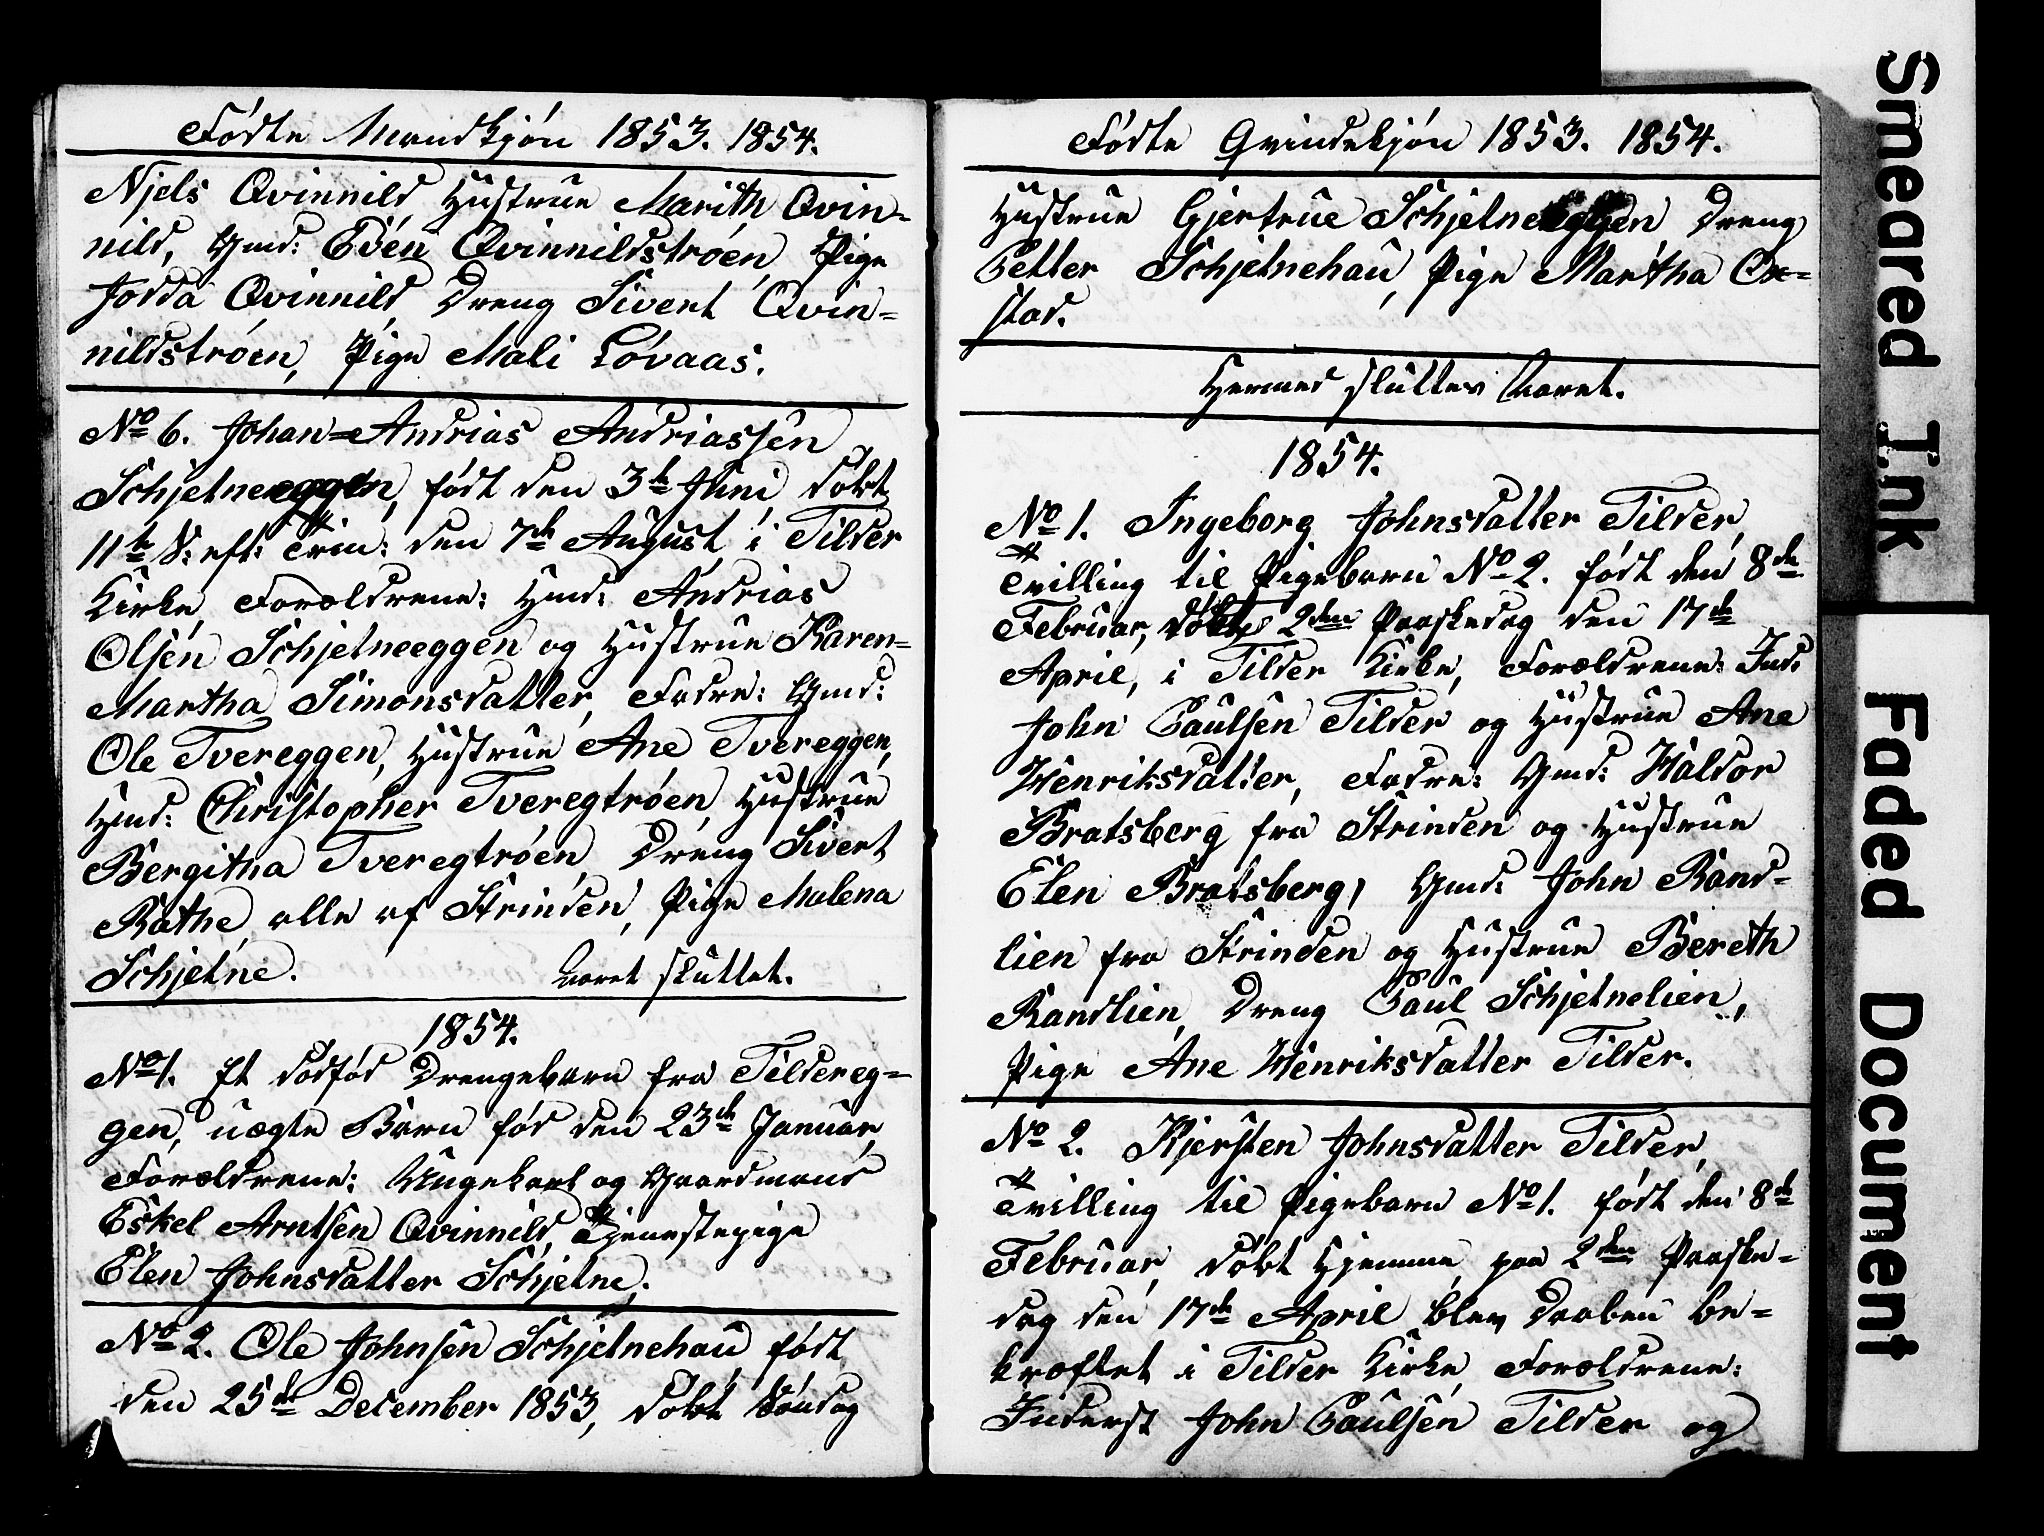 Fødte Mandkjøn 1853. 1854.
Njels Qvinnild Hustrue Marith Qvin=
nild, Gmd: Edén Qvinnildstrøen, Pige
Jorda Qvinnild, Dreng Sivert Qvin=
nildstrøen, Pige Mali Løvaas.
No 6. Johan=Andrias Andriassen
Schjetneeggen, født den 3de Juni døbt
11te S: eft: Trin: den 7de August i Tilder
Kirke, Forældrene: Hmd: Andrias
Olsén Schjetneeggen og Hustrue Karen=
Martha Simonsdatter, Fadre: Gmd:
Ole Tvereggen, Hustrue Ane Tvereggen,
Hmd: Christopher Tveregtrøen, Hustrue
Bergitha Tveregtrøen, Dreng Sivert
Rathe, alle af Strinden, Pige Malena
Schjetne. Aaret sluttet.
1854.
No 1. Et dødfød Drengebarn fra Tildereg=
gen, uægte Barn fød den 23de Januar,
Forældrene: Ungekarl og Gaardmand
Eskel Arntsen Qvinnild, Tjenestepige
Elen Johnsdatter Schjetne.
No 2. Ole Johnsen Schjetnehau født
den 25de December 1853, døbt Søndag
Fødte Qvindekjøn 1853. 1854.
Hustrue Gjertrue Schjetneeggen Dreng
Petter Schjetnehau, Pige Martha Ox=
stad.
Hermed sluttes Aaret.
1854.
No 1. Ingeborg Johnsdatter Tilder,
Tvilling til Pigebarn No 2. født den 8de
Februar, døbt 2den Paaskedag den 17de
April, i Tilder Kirke, Forældrene: Ind:
John Paulsen Tilder og Hustrue Ane
Henriksdatter, Fadre: Gmd: Haldor
Bratsberg fra Strinden og Hustrue
Elen Bratsberg, Gmd: John Rand=
lien fra Strinden og Hustrue Bereth
Randlien, Dreng Paul Schjetnelien,
Pige Ane Henriksdatter Tilder.
No 2. Kjersten Johnsdatter Tilder,
Tvilling til Pigebarn No 1. født den 8de
Februar, døbt Hjemme, paa 2den Paaske=
dag den 17de April blev Daaben be=
kræftet i Tilder Kirke, Forældrene:
Inderst John Paulsén Tilder og
Smeared Ink
Faded Document